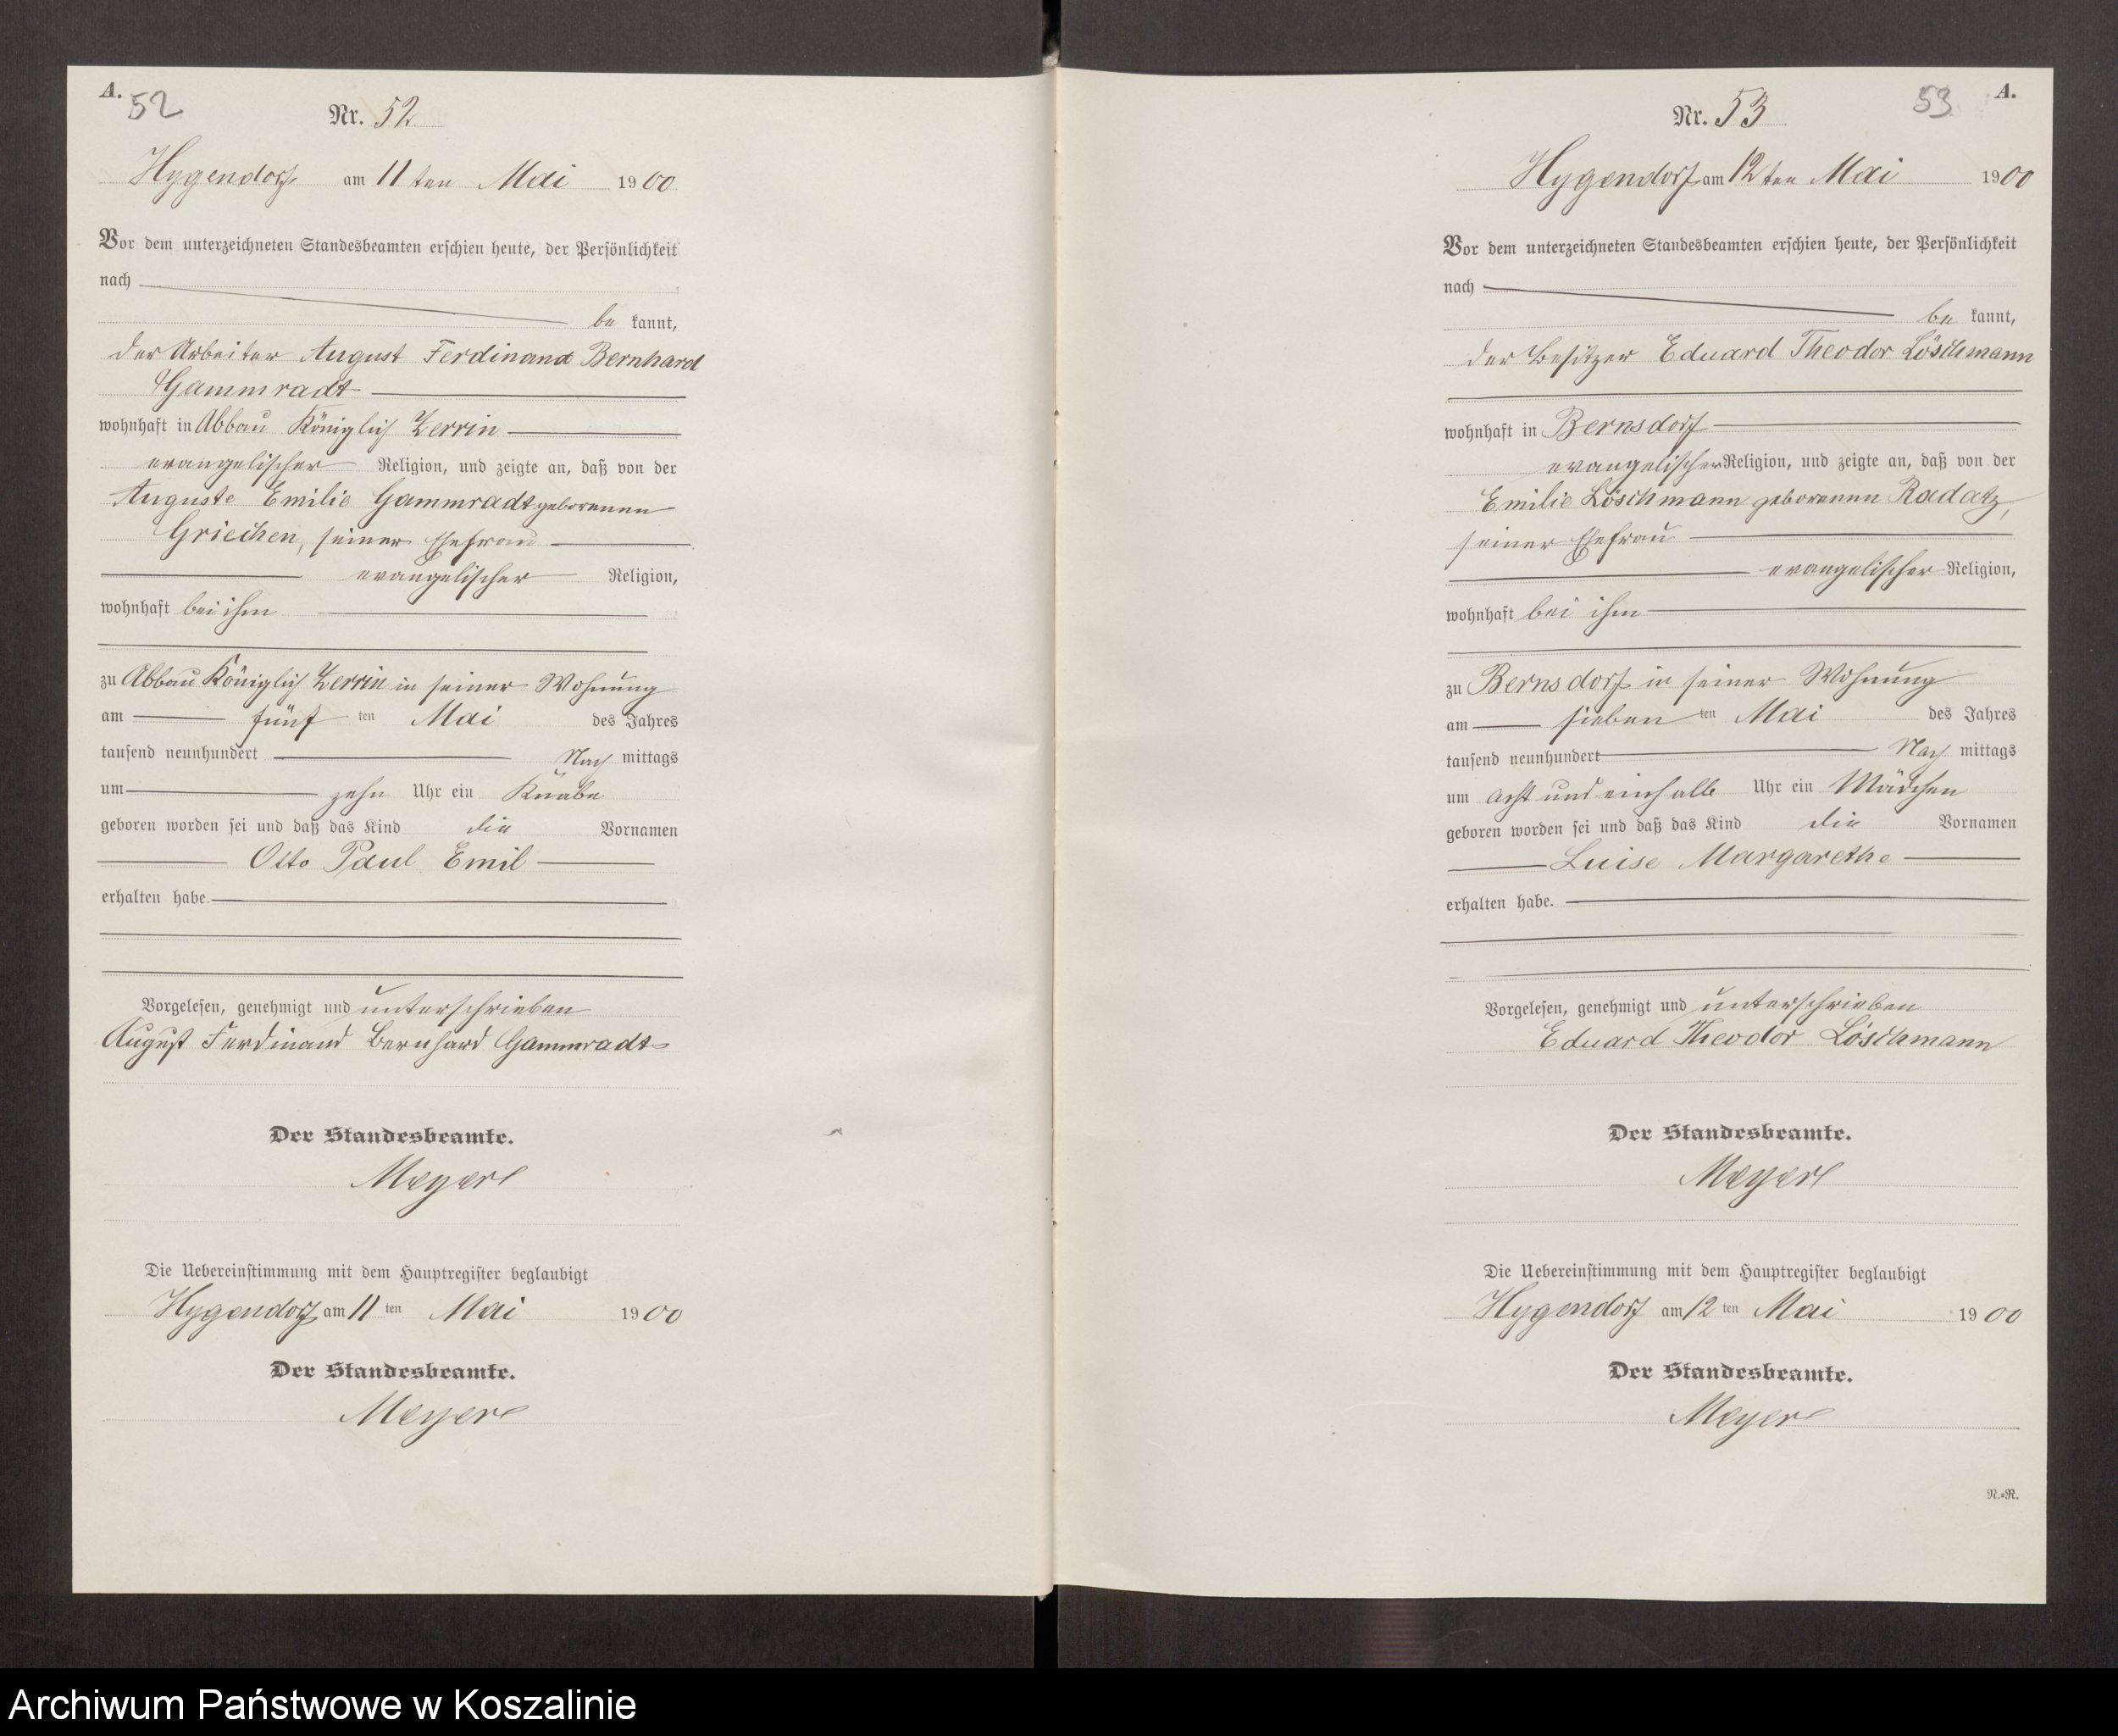 A.
52
Nr. 52
Hygendorf am 11 ten Mai 1900
Vor dem unterzeichneten Standesbeamten erschien heute, der Persönlichkeit
nach
be kannt,
der Arbeiter August Ferdinand Bernhard
Gammradt
wohnhaft in Abbau Königlich Zerrin
evangelischer Religion, und zeigte an, daß von der
Auguste Emilie Gammradt geborenen
Griechen, seiner Ehefrau
evangelischer Religion,
wohnhaft bei ihm
zu Abbau Königlich Zerrin in seiner Wohnung
am fünf ten Mai des Jahres
tausend neunhundert Nach mittags
um zehn Uhr ein Knabe
geboren worden sei und daß das Kind die Vornamen
Otto Paul Emil
erhalten habe.
Vorgelesen, genehmigt und unterschrieben
August Ferdinand Bernhard Gammradt
Der Standesbeamte.
Meyer
Die Uebereinstimmung mit dem Hauptregister beglaubigt
Hygendorf am 11 ten Mai 1900
Der Standesbeamte.
Meyer
A.
53
Nr. 53
Hygendorf am 12 ten Mai 1900
Vor dem unterzeichneten Standesbeamten erschien heute, der Persönlichkeit
nach
be kannt,
der Besitzer Eduard Theodor Löschmann
wohnhaft in Bernsdorf
evangelischer Religion, und zeigte an, daß von der
Emilie Löschmann geborenen Radatz,
seiner Ehefrau
evangelischer Religion,
wohnhaft bei ihm
zu Bernsdorf in seiner Wohnung
am sieben ten Mai des Jahres
tausend neunhundert Nach mittags
um acht und einhalb Uhr ein Mädchen
geboren worden sei und daß das Kind die Vornamen
Luise Margarethe
erhalten habe.
Vorgelesen, genehmigt und unterschrieben
Eduard Theodor Löschmann
Der Standesbeamte.
Meyer
Die Uebereinstimmung mit dem Hauptregister beglaubigt
Hygendorf am 12 ten Mai 1900
Der Standesbeamte.
Meyer
N.=N.
Archiwum Państwowe w Koszalinie